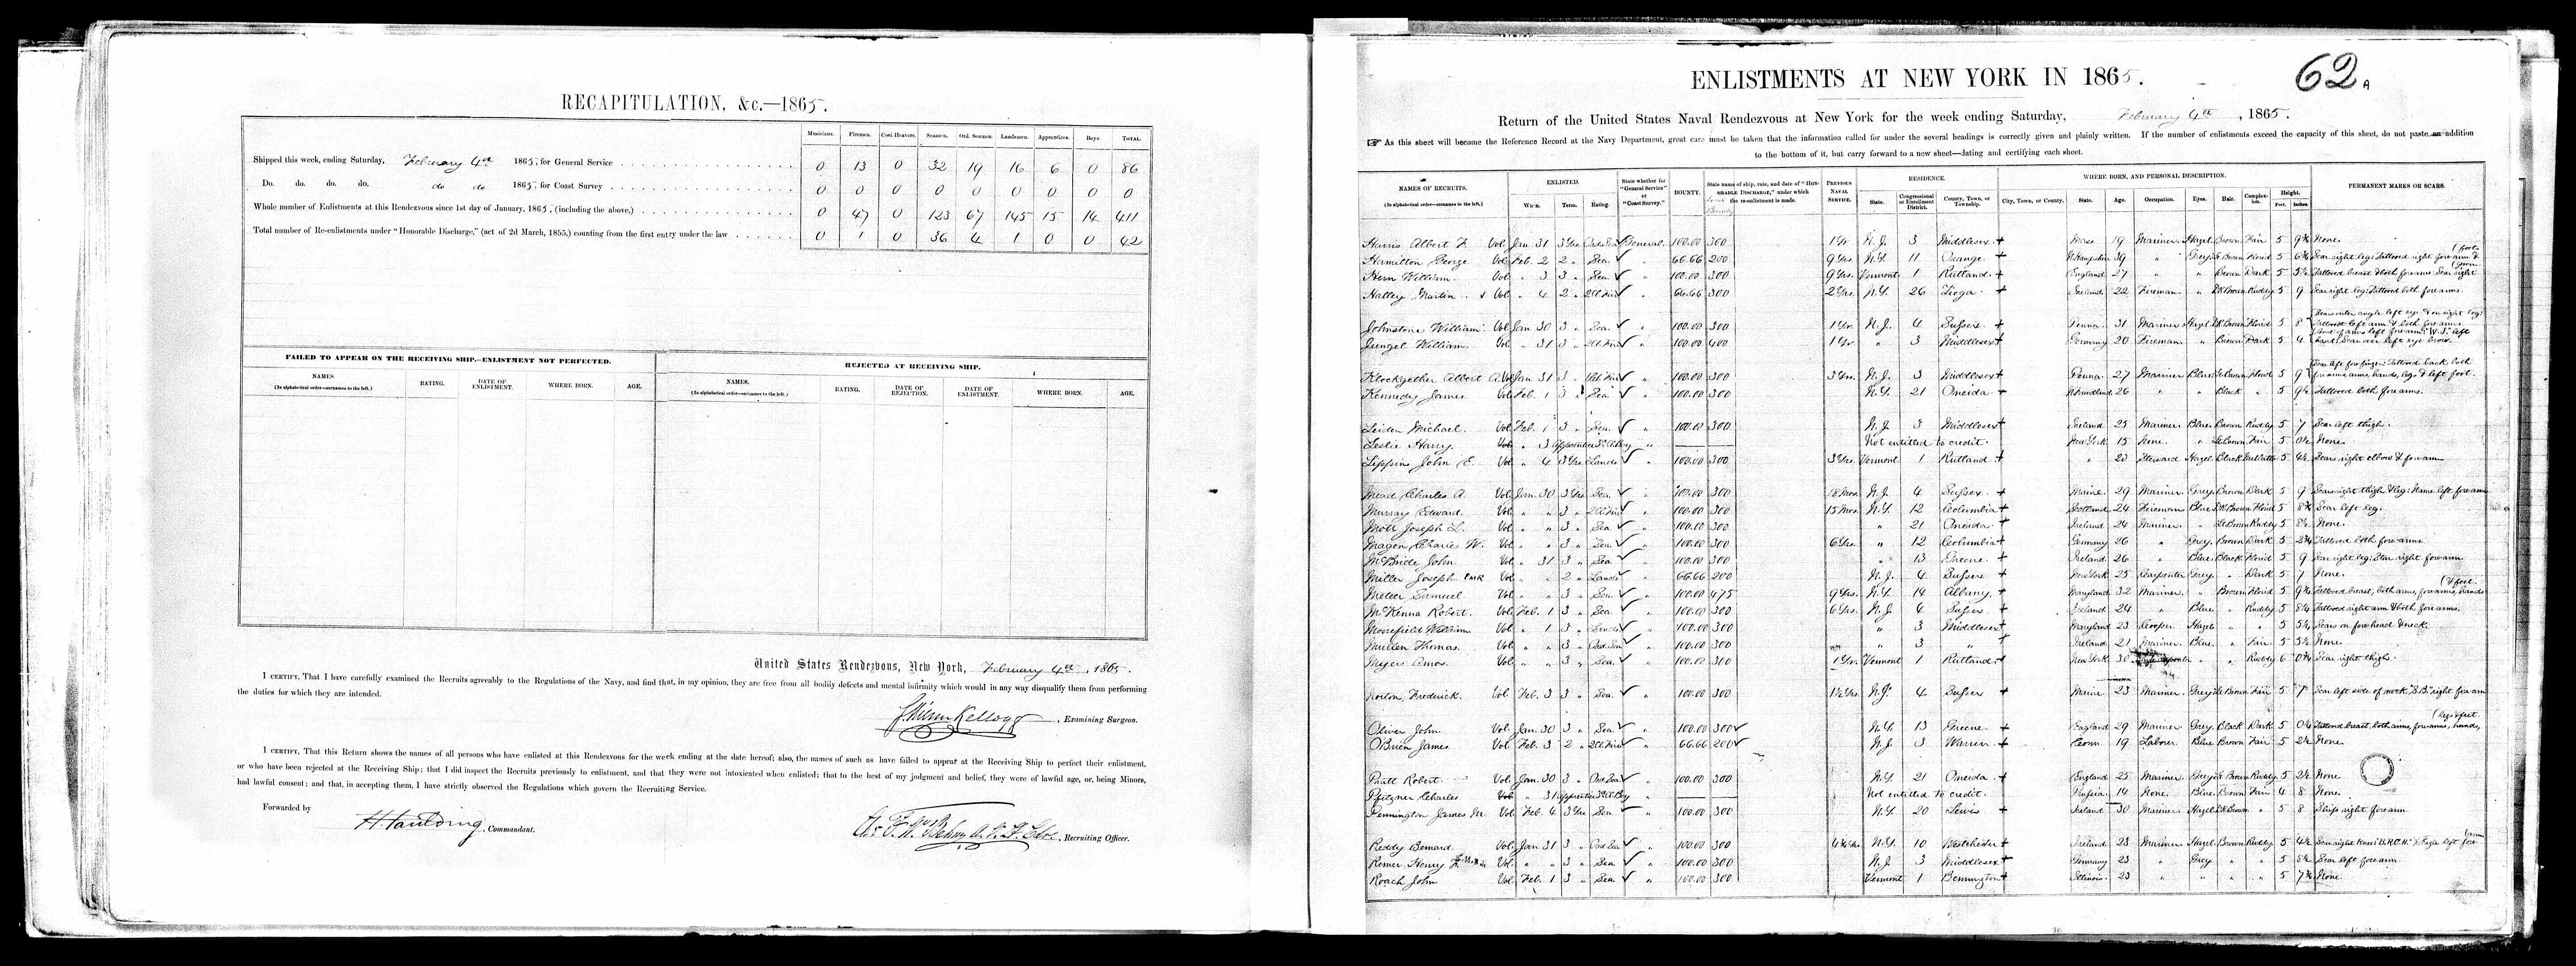 RECAPITULATION, &c.—1865.
Musicians. Firemen. Coal-Heavers. Seamen. Ord. Seamen. Landsmen. Apprentices. Boys. TOTAL.
Shipped this week, ending Saturday, February 4th 1865, for General Service 0 13 0 32 19 16 6 0 86
Do. do. do. do. do do 1865, for Coast Survey 0 0 0 0 0 0 0 0 0
Whole number of Enlistments at this Rendezvous since 1st day of January, 1865, (including the above,) 0 47 0 123 67 145 15 14 411
Total number of Re-enlistments under "Honorable Discharge," (act of 2d March, 1855,) counting from the first entry under the law 0 1 0 36 4 1 0 0 42
FAILED TO APPEAR ON THE RECEIVING SHIP.—ENLISTMENT NOT PERFECTED.
NAMES (In alphabetical order—surnames to the left.) RATING. DATE OF ENLISTMENT. WHERE BORN. AGE.
REJECTED AT RECEIVING SHIP.
NAMES. (In alphabetical order—surnames to the left.) RATING. DATE OF REJECTION. DATE OF ENLISTMENT. WHERE BORN. AGE.
United States Rendezvous, New York, February 4th, 1865.
I CERTIFY, That I have carefully examined the Recruits agreeably to the Regulations of the Navy, and find that, in my opinion, they are free from all bodily defects and mental infirmity which would in any way disqualify them from performing
the duties for which they are intended.
Kellogg, Examining Surgeon.
I CERTIFY, That this Return shows the names of all persons who have enlisted at this Rendezvous for the week ending at the date hereof; also, the names of such as have failed to appear at the Receiving Ship to perfect their enlistment,
or who have been rejected at the Receiving Ship; that I did inspect the Recruits previously to enlistment, and that they were not intoxicated when enlisted; that to the best of my judgment and belief, they were of lawful age, or, being Minors,
had lawful consent; and that, in accepting them, I have strictly observed the Regulations which govern the Recruiting Service.
Forwarded by
H. Paulding, Commandant.
Recruiting Officer.
62 A
ENLISTMENTS AT NEW YORK IN 1865.
Return of the United States Naval Rendezvous at New York for the week ending Saturday, February 4th, 1865.
As this sheet will become the Reference Record at the Navy Department, great care must be taken that the information called for under the several headings is correctly given and plainly written. If the number of enlistments exceed the capacity of this sheet, do not paste an addition
to the bottom of it, but carry forward to a new sheet—dating and certifying each sheet.
NAMES OF RECRUITS. (In alphabetical order—surnames to the left.) ENLISTED. When. Term. Rating. State whether for "General Service" or "Coast Survey." BOUNTY. State name of ship, rate, and date of "HONORABLE DISCHARGE," under which the re-enlistment is made. Local Bounty PREVIOUS NAVAL SERVICE. RESIDENCE. State. Congressional or Enrollment District. County, Town, or Township. WHERE BORN, AND PERSONAL DESCRIPTION. City, Town, or County. State. Age. Occupation. Eyes. Hair. Complexion. Height. Feet. Inches. PERMANENT MARKS OR SCARS.
Harris Albert F. Vol. Jan. 31 3 Yrs Ord. Sea General. 100.00 300 1 Yr. N. J. 3 Middlesex + Mass. 19 Mariner. Hazel Brown Fair 5 9¾ None.
Hamilton George Vol. Feb. 2 2 " Sea. " 66.66 200 9 Yrs. N.Y. 11 Orange + N. Hampshire 39 " Grey Lt. Brown Florid 5 6¾ Scar right leg: Tattooed right forearm & (foot.
Hern William. Vol. " 3 3 " Sea. " 100.00 300 9 Yrs. Vermont 1 Rutland + England 27 " " Brown Dark 5 5½ Tattooed breast & both forearms Scar right (groin.
Halley Martin Vol. " 4 2 " 2d Cl. Fire " 66.66 300 2 Yrs. N.Y. 26 Tioga + Ireland 22 Fireman " Dk Brown Ruddy 5 9 Scar right leg: Tattooed both forearms.
Johnstone William Vol. Jan. 30 3 " Sea. " 100.00 300 1 Yr. N. J. 4 Sussex + Penna. 31 Mariner Hazel Dk Brown Florid 5 8 Scars outer angle left eye & on right leg: Tattooed left arm & both forearms
Jungel William Vol. " 31 3 " 2d Cl. Fire " 100.00 400 1 Yr. " 3 Middlesex + Germany 20 Fireman " Brown Dark 5 4 Coat of arms left forearm "W.J." left hand: Scar over left eye brow.
Klockgether Albert A. Vol. Jan. 31 3 " " 100.00 300 3 Yrs. N. J. 3 Middlesex + Penna. 27 Mariner Blue Lt. Brown Florid 5 9 Scar left forefinger: Tattooed back both forearms, arms, hands, legs & left foot.
Kennedy James Vol. Feb. 1 3 " Sea " 100.00 300 N.Y. 21 Oneida + N. Foundland 26 " " Black " 5 9½ Tattooed both forearms.
Leiden Michael. Vol. Feb. 1 3 " Sea. " 100.00 300 N. J. 3 Middlesex + Ireland 25 Mariner Blue Brown Ruddy 5 7 Scar left thigh.
Leslie Harry. Vol. " 3 Apprentice 3d Cl. Boy " Not entitled to credit. New York 15 None. " Lt Brown Fair 5 0½ None.
Lippins John E. Vol. " 4 3 Yrs. Lands " 100.00 300 3 Yrs. Vermont 1 Rutland + " 23 Steward Hazel Black Mullatto 5 4½ Scars right elbow & forearm
Mead Charles A. Vol. Jan. 30 3 Yrs. Sea. " 100.00 300 18 Mos. N. J. 4 Sussex + Maine. 29 Mariner. Grey Brown Dark 5 9 Scars right thigh & leg: Name left forearm
Murray Edward. Vol. " " 3 " 2d Cl. Fire " 100.00 300 15 Mos. N.Y. 12 Columbia + Scotland 24 Fireman Blue Dk Brown Florid 5 8¾ Scar left leg.
Mott Joseph L. Vol. " " 3 " Sea " 100.00 300 " 21 Oneida + Ireland 24 Mariner. " Lt Brown Ruddy 5 8½ None.
Magen Charles W. Vol. " " 3 " Sea. " 100.00 300 6 Yrs. " 12 Columbia + Germany 26 " Grey. Brown Dark 5 2¾ Tattooed both forearms.
McBride John. Vol. " 31 3 " Sea " 100.00 300 " 13 Greene + Ireland 26 " Blue Black Florid 5 9 Scar right leg: Star right forearm
Miller Joseph Vol. " " 2 " Lands " 66.66 200 N. J. 4 Sussex + New York 25 Carpenter Grey. " Dark 5 7 None.
Meteer Samuel Vol. " " 3 " Sea. " 100.00 475 9 Yrs. N.Y. 14 Albany + Maryland 32 Mariner. " Brown Florid 5 9½ Tattooed breast, both arms, forearms, hands (& feet.
McKenna Robert. Vol. Feb. 1 3 " Sea. " 100.00 300 6 Yrs. N. J. 4 Sussex + Ireland 24 " Blue. " Ruddy 5 8¼ Tattooed right arm & both forearms.
Moorefield William Vol. " 1 3 " Lands " 100.00 300 " 3 Middlesex + Maryland 23 Cooper. Hazel " " 5 5¾ Scars on forehead & neck.
Mullen Thomas. Vol. " " 3 " Ord. Sea " 100.00 300 " 3 " + Ireland 21 Mariner Blue. " Fair 5 5½ None.
Myers Amos. Vol. " " 3 " Sea. " 100.00 300 1 Yr. Vermont 1 Rutland + New York 30 " " Ruddy 6 0¾ Scar right thigh.
Norton Frederick. Vol. Feb. 3 3 " Sea. " 100.00 300 1½ Yrs. N. J. 4 Sussex + Maine 23 Mariner. Grey Lt Brown Fair 5 7 Scar left side of neck "S.B." right forearm
Oliver John. Vol. Jan. 30 3 " Sea " 100.00 300 N.Y. 13 Greene + England 29 Mariner Grey. Black Dark 5 0¼ Tattooed breast, both arms, forearms, hands, (legs & feet.
O'Brien James Vol. Feb. 3 2 " 2d Cl. Fire " 66.66 200 N. J. 3 Warren + Conn. 19 Laborer Blue Brown Fair 5 2½ None.
Pratt Robert. Vol. Jan. 30 3 " Ord. Sea " 100.00 300 N.Y. 21 Oneida + England 25 Mariner. Grey Lt Brown Ruddy 5 2½ None
Pfitzner Charles. Vol. " 31 Apprentice 3d Cl. Boy " Not entitled to credit. Russia 14 None. Blue Brown Fair 4 8 None.
Pennington James M. Vol. Feb. 4 3 Yrs Sea " 100.00 300 N.Y. 20 Lewis + Ireland 30 Mariner Hazel Dk Brown " 5 8 Ship right forearm
Reddy Bernard. Vol. Jan 31 3 " Ord. Sea " 100.00 300 4½ Yrs. N.Y. 10 Westchester + Ireland 23 Mariner Hazel Brown Ruddy 5 4½ Scar right Knee: & Eagle left fore (arm
Remer Henry F. Vol. " " 3 " Sea " 100.00 300 N. J. 3 Middlesex + Germany 23 " Grey " " 5 8½ Scar left forearm.
Roach John Vol. Feb. 1 3 " Sea " 100.00 300 Vermont 1 Bennington + Illinois. 23 " " " " 5 7¾ None.